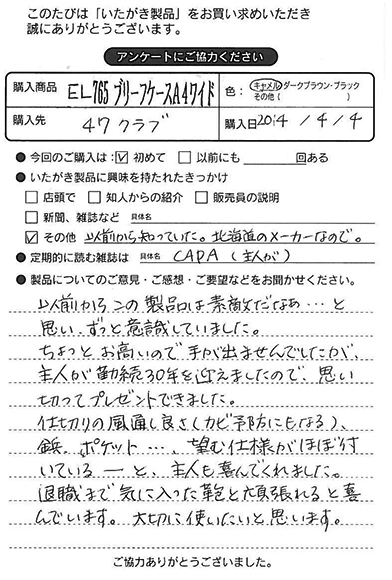 このたびは「いたがき製品」をお買い求めいただき
誠にありがとうございます。
アンケートにご協力ください
購入商品 EL765 ブリーフケースA4ワイド 色：キャメル・ダークブラウン・ブラック
その他（ ）
購入先 47クラブ 購入日2014 / 4 / 4
● 今回のご購入は：☑ 初めて □ 以前にも 回ある
● いたがき製品に興味を持たれたきっかけ
□ 店頭で □ 知人からの紹介 □ 販売員の説明
□ 新聞、雑誌など 具体名
☑ その他 以前から知っていた。北海道のメーカーなので。
● 定期的に読む雑誌は 具体名 CAPA（主人が）
● 製品についてのご意見・ご感想・ご要望などをお聞かせください。
以前からこの製品は素敵だなあ…と
思い、ずっと意識していました。
ちょっとお高いので手が出ませんでしたが、
主人が勤続30年を迎えましたので、思い
切ってプレゼントできました。
仕切りの風通し良さ（カビ予防にもなる）、
鋲、ポケット…、望む仕様がほぼ付
いている ー と、主人も喜んでくれました。
退職まで気に入った鞄と頑張れると喜
んでいます。大切に使いたいと思います。
ご協力ありがとうございました。